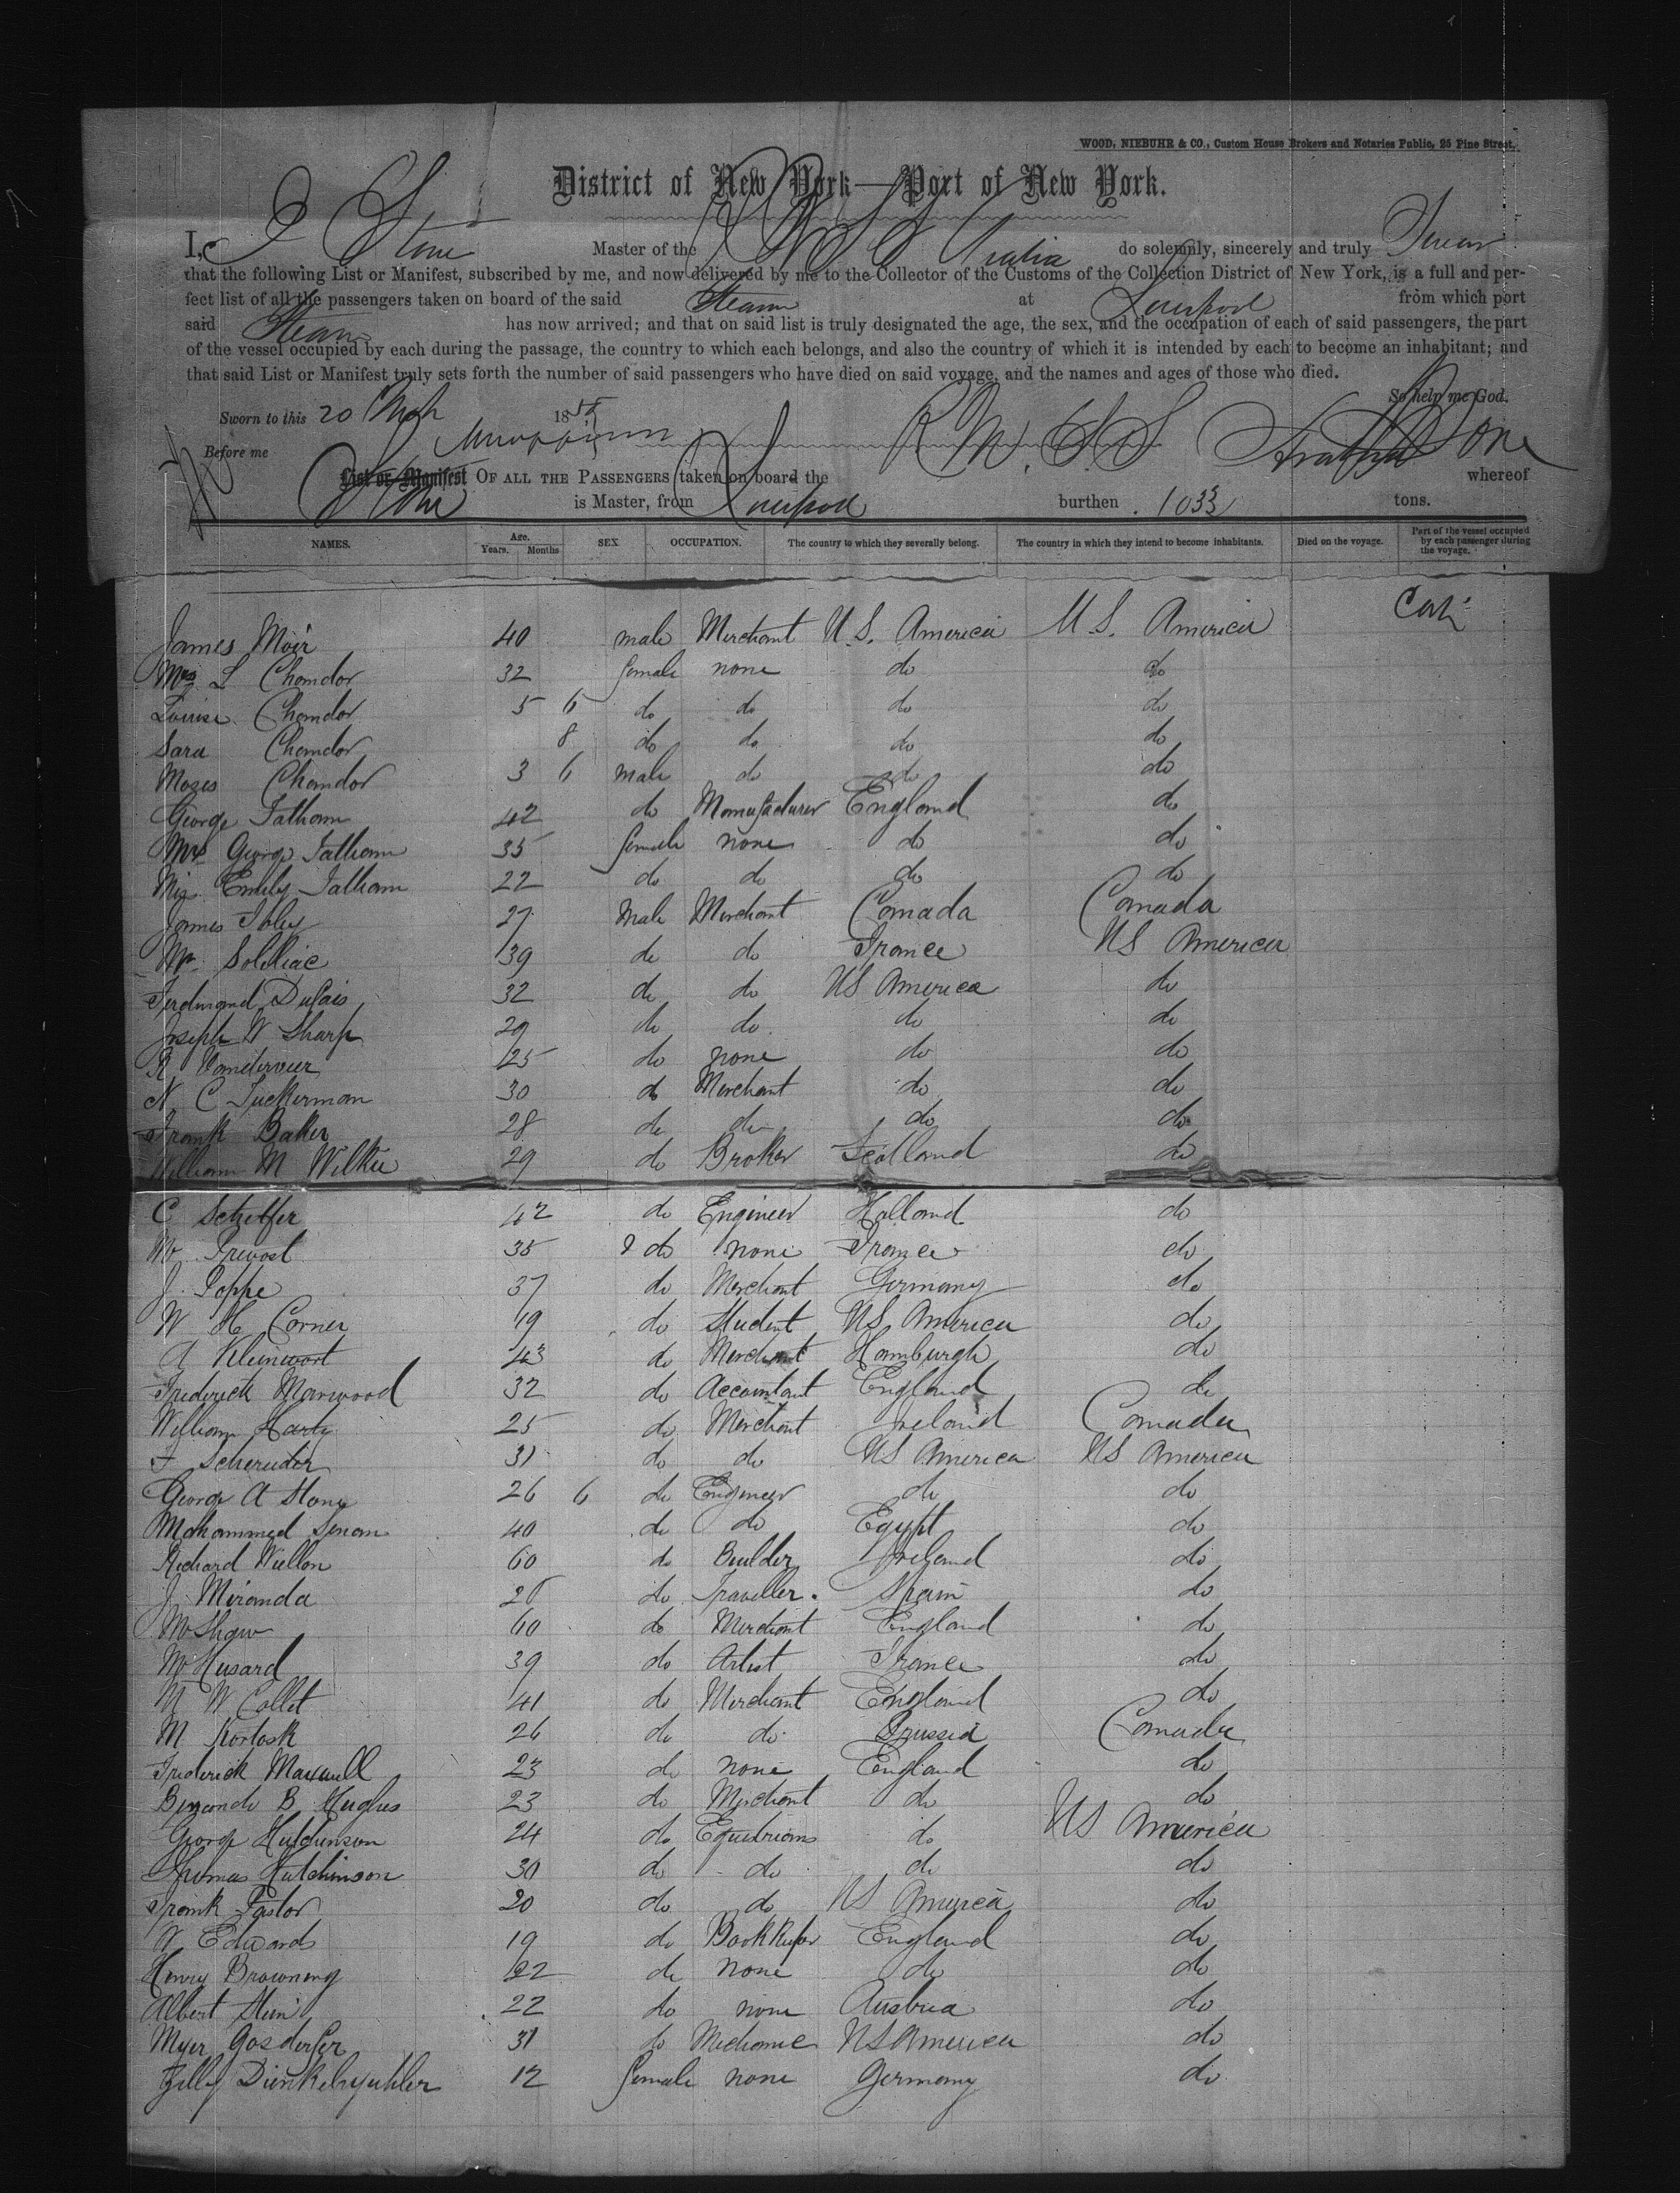 WOOD, NIEBUHR & CO., Custom House Brokers and Notaries Public, 25 Pine Street.
District of New York—Port of New York.
I, J Stone Master of the R M S S Arabia do solemnly, sincerely and truly Swear
that the following List or Manifest, subscribed by me, and now delivered by me to the Collector of the Customs of the Collection District of New York, is a full and per-
fect list of all the passengers taken on board of the said Steam at Liverpool from which port
said Steam has now arrived; and that on said list is truly designated the age, the sex, and the occupation of each of said passengers, the part
of the vessel occupied by each during the passage, the country to which each belongs, and also the country of which it is intended by each to become an inhabitant; and
that said List or Manifest truly sets forth the number of said passengers who have died on said voyage, and the names and ages of those who died.
So help me God.
Sworn to this 20 Mch 18
Before me Stone
List or Manifest OF ALL THE PASSENGERS taken on board the R M. S. S Arabia whereof
Stone is Master, from Liverpool burthen 1033 tons.
NAMES. Age. Years. Months SEX OCCUPATION. The country to which they severally belong. The country in which they intend to become inhabitants. Died on the voyage. Part of the vessel occupied by each passenger during the voyage.
James Moir 40 male Merchant U.S. America U S. America
Mrs L Chamdor 32 female none do do
Louise Chamdor 5 6 do do do do
Sara Chamdor 8 do do do do
Mozes Chamdor 3 6 male do do do
George Tatham 42 do Manufacturer England do
Mrs George Tatham 35 female none do do
Miss Emily Tatham 22 do do do do
James 27 Male Merchant Canada Canada
Mr 39 do do France US America
Ferdinand 32 do do US America do
Joseph W Sharp 29 do do do do
R Vanderveer 25 do none do do
N C Tuckerman 30 do Merchant do do
Frank Baker 28 do do do do
William M Wilkie 29 do Broker Scotland do
C 42 do Engineer Holland do
Mr Prevost 35 do none France do
J. Poppe 37 do Merchant Germany do
W H Corner 19 do Student US America do
A Kleinwort 43 do Merchant Hamburgh do
Frederick Marwood 32 do Accountant England do
William Harty 25 do Merchant Ireland Canada
F 31 do do US America US America
George A Stone 26 6 do Engineer do do
Mohammed 40 do do Egypt do
Richard 60 do Builder Ireland do
J. Miranda 28 do Traveller. Spain do
Mr Shaw 60 do Merchant England do
Mr Husard 39 do Artist France do
M W Collet 41 do Merchant England do
M 26 do do Prussia Canada
Frederick Maxwell 23 do none England do
B Hughes 23 do Merchant do do
George Hutchinson 24 do Equestrians do US America
Thomas Hutchinson 30 do do do do
Frank Pastor 20 do do US America do
W Edwards 19 do Bookkeeper England do
Henry Browning 22 do none do do
Albert Stein 22 do none Austria do
Myer 31 do Mechanic US America do
12 female none Germany do